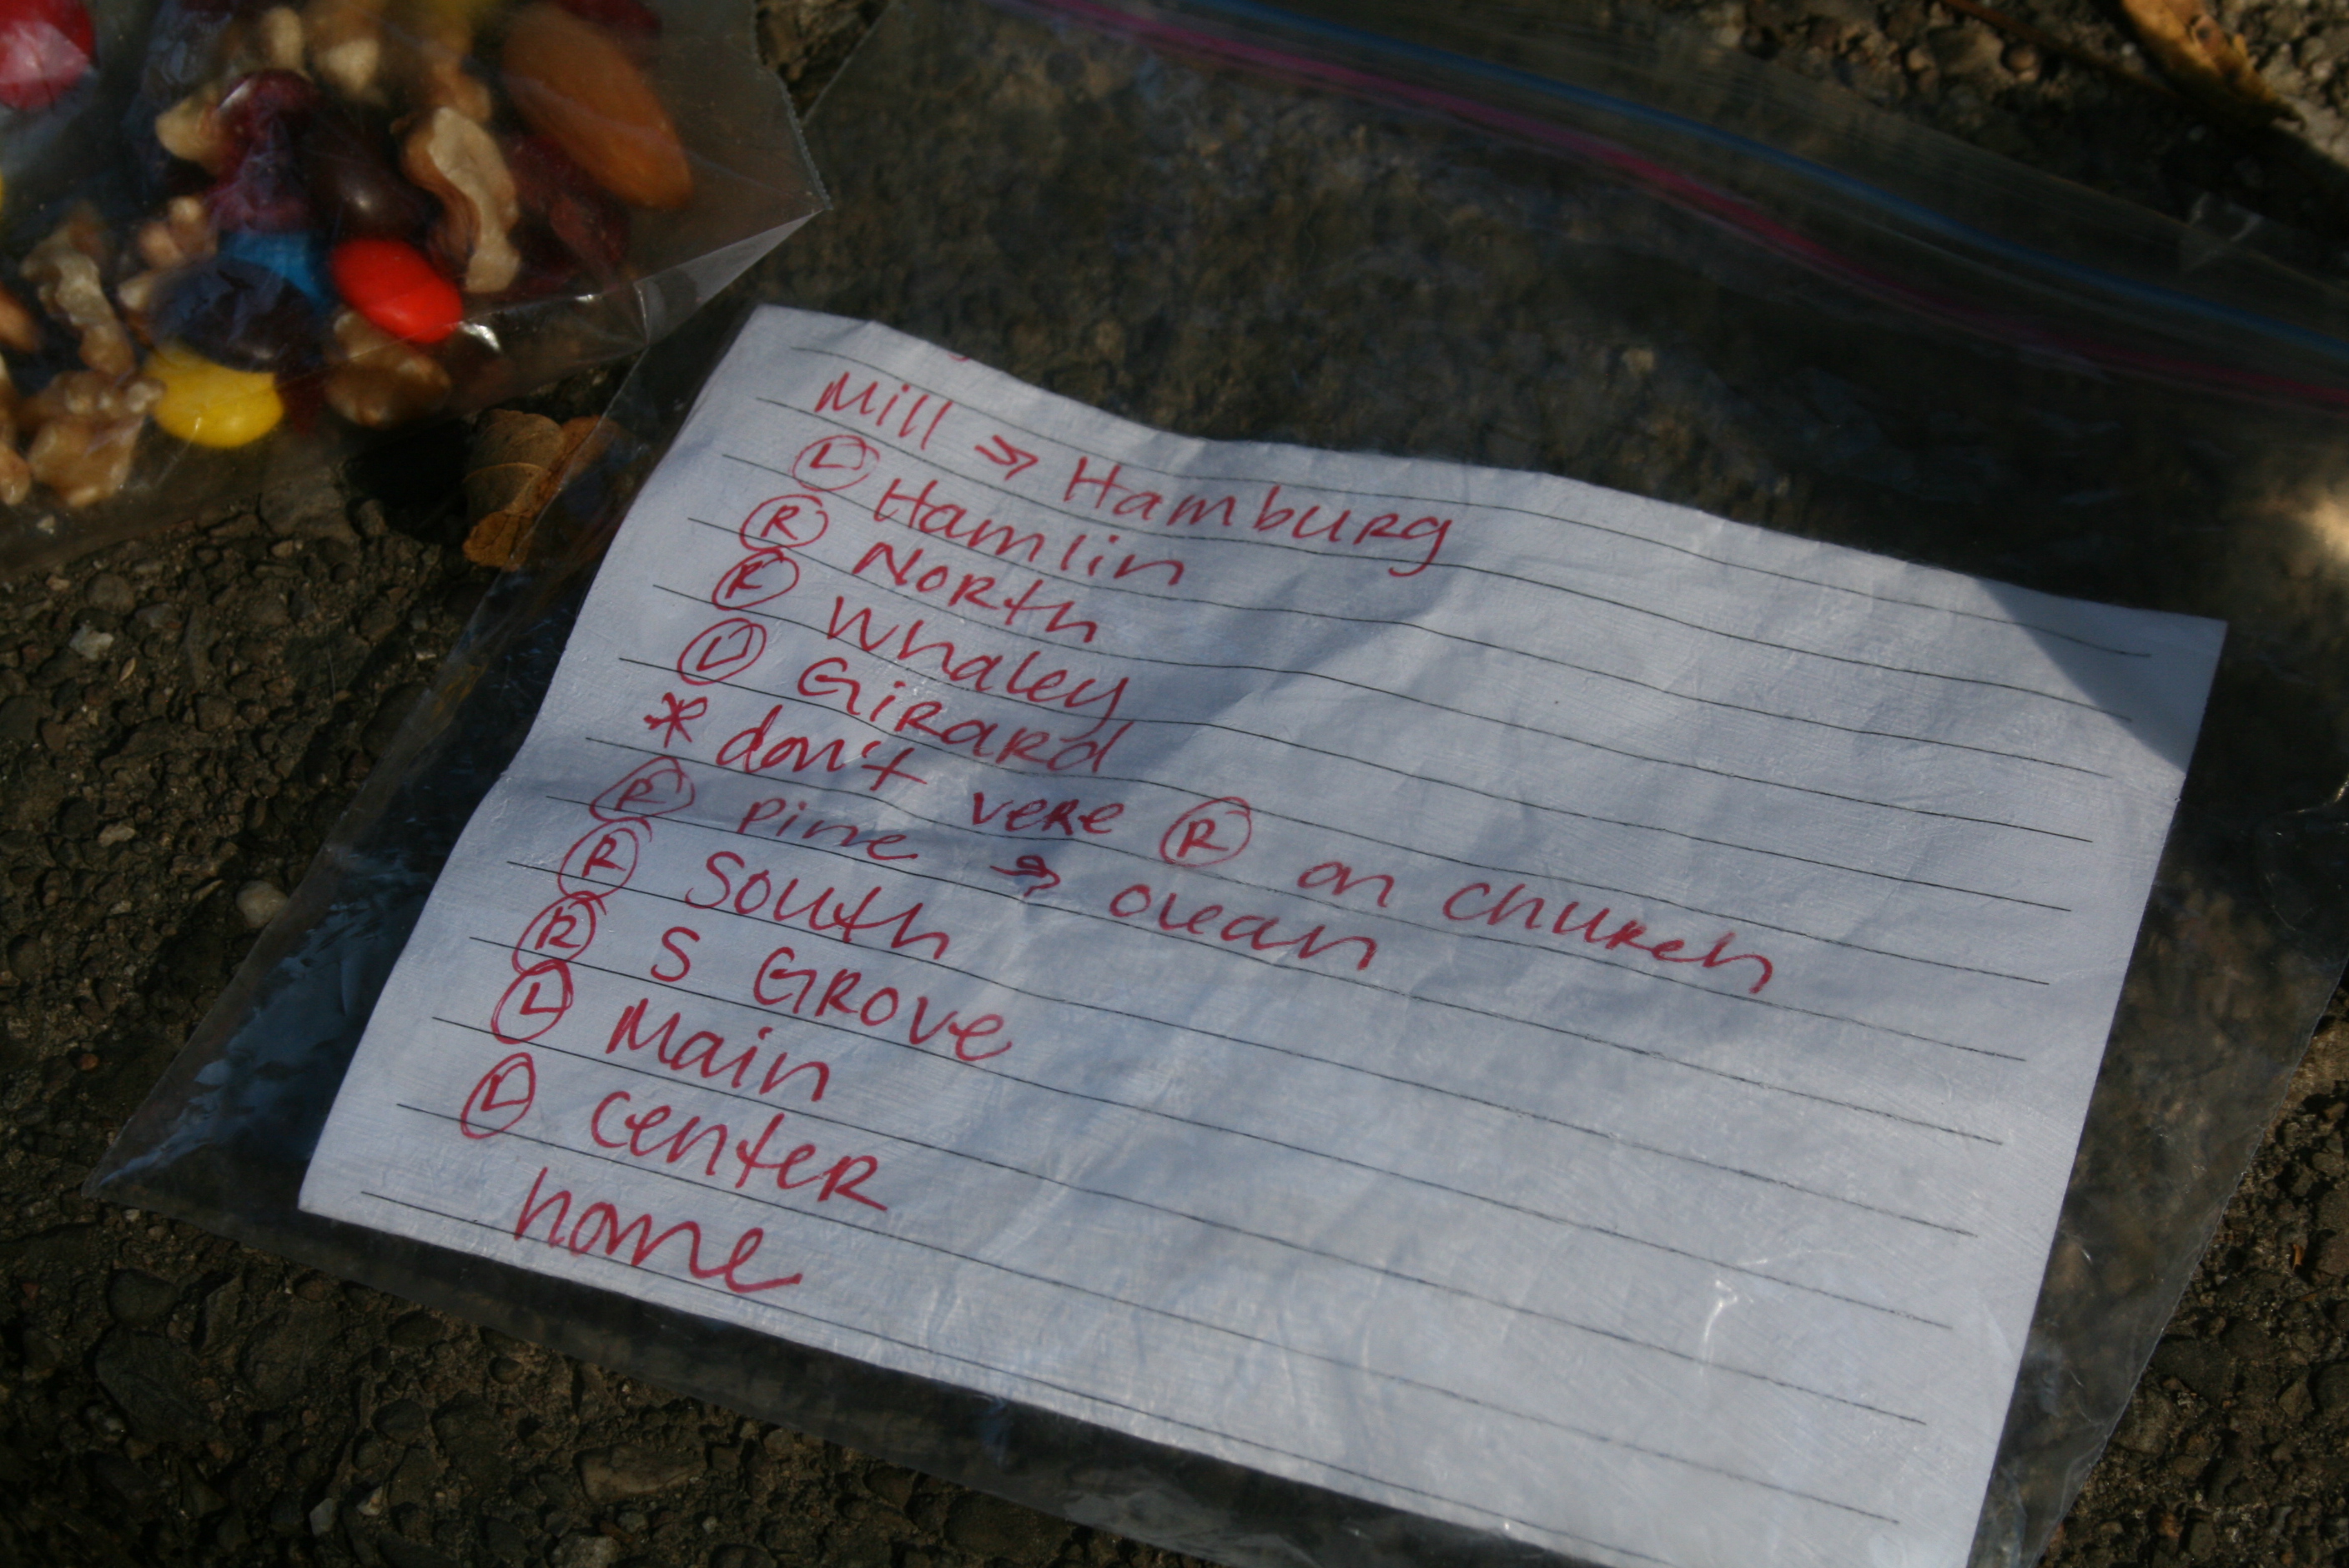 Mill → Hamburg
Ⓛ Hamlin
Ⓡ North
Ⓡ Whaley
Ⓛ Girard
* don't vere Ⓡ on church
Ⓡ Pine → Olean
Ⓡ South
Ⓡ S Grove
Ⓛ Main
Ⓛ Center
home